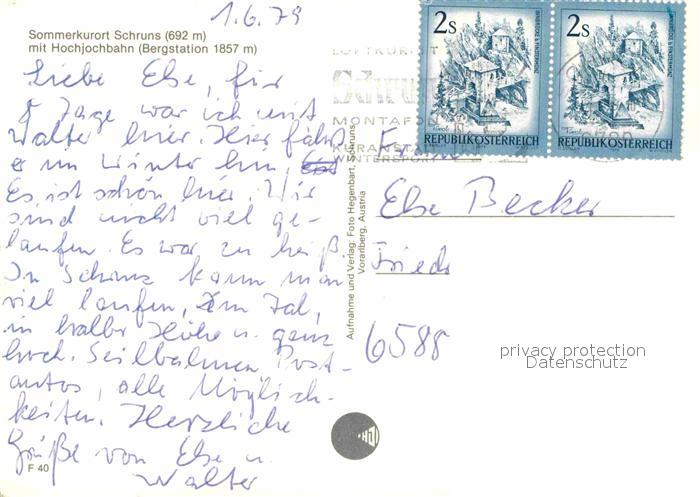 1.6.79
Sommerkurort Schruns (692 m)
mit Hochjochbahn (Bergstation 1857 m)
Liebe Else, für
8 Tage war ich mit
Walter hier. Hier fährt
er im Winter hin,
Es ist schön hier. Wir
sind nicht viel ge-
laufen. Es war zu heiß
In Schruns kann man
viel laufen, Im Tal,
in halber Höhe u. ganz
hoch. Seilbahnen, Post-
autos, alle Möglich-
keiten. Herzliche
Grüße von Else u.
Walter
F 40
Aufnahme und Verlag: Foto Hegenbart, Schruns
Vorarlberg, Austria
LUFTKURORT
Schruns
MONTAFON
KURANSTALT
WINTERSPORT
2s
REPUBLIK ÖSTERREICH
2s
REPUBLIK ÖSTERREICH
Else Becker
6588
privacy protection
Datenschutz